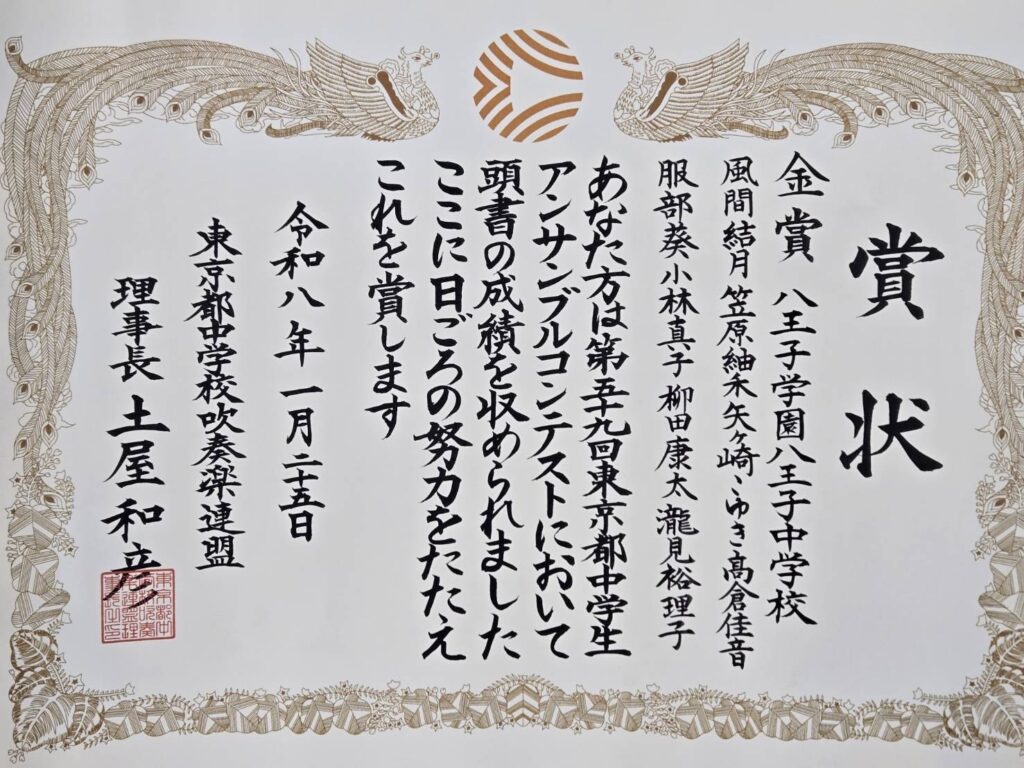 賞状
金賞 八王子学園八王子中学校
風間結月 笠原紬禾 矢ヶ崎こゆき 髙倉佳音
服部葵 小林真子 柳田康太 瀧見裕理子
あなた方は第五十九回東京都中学生
アンサンブルコンテストにおいて
頭書の成績を収められました
ここに日ごろの努力をたたえ
これを賞します
令和八年一月二十五日
東京都中学校吹奏楽連盟
理事長 土屋和彦